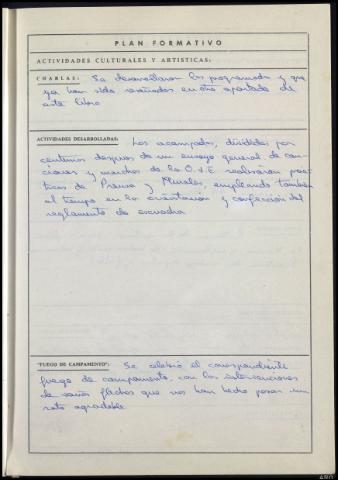 PLAN FORMATIVO
ACTIVIDADES CULTURALES Y ARTISTICAS:
CHARLAS: Se desarrollaron las programadas y que
ya han sido reseñadas en otro apartado de
este libro
ACTIVIDADES DESARROLLADAS: Los acampados, divididos por
centurias despues de un ensayo general de can-
ciones y marchas de la O.J.E realizaron prac-
ticas de Prensa y Murales, empleando tambien
el tiempo en la orientacion y confección del
reglamento de escuadra
"FUEGO DE CAMPAMENTO": Se celebró el correspondiente
fuego de campamento, con las intervenciones
de varios flechas que nos han hecho pasar un
rato agradable